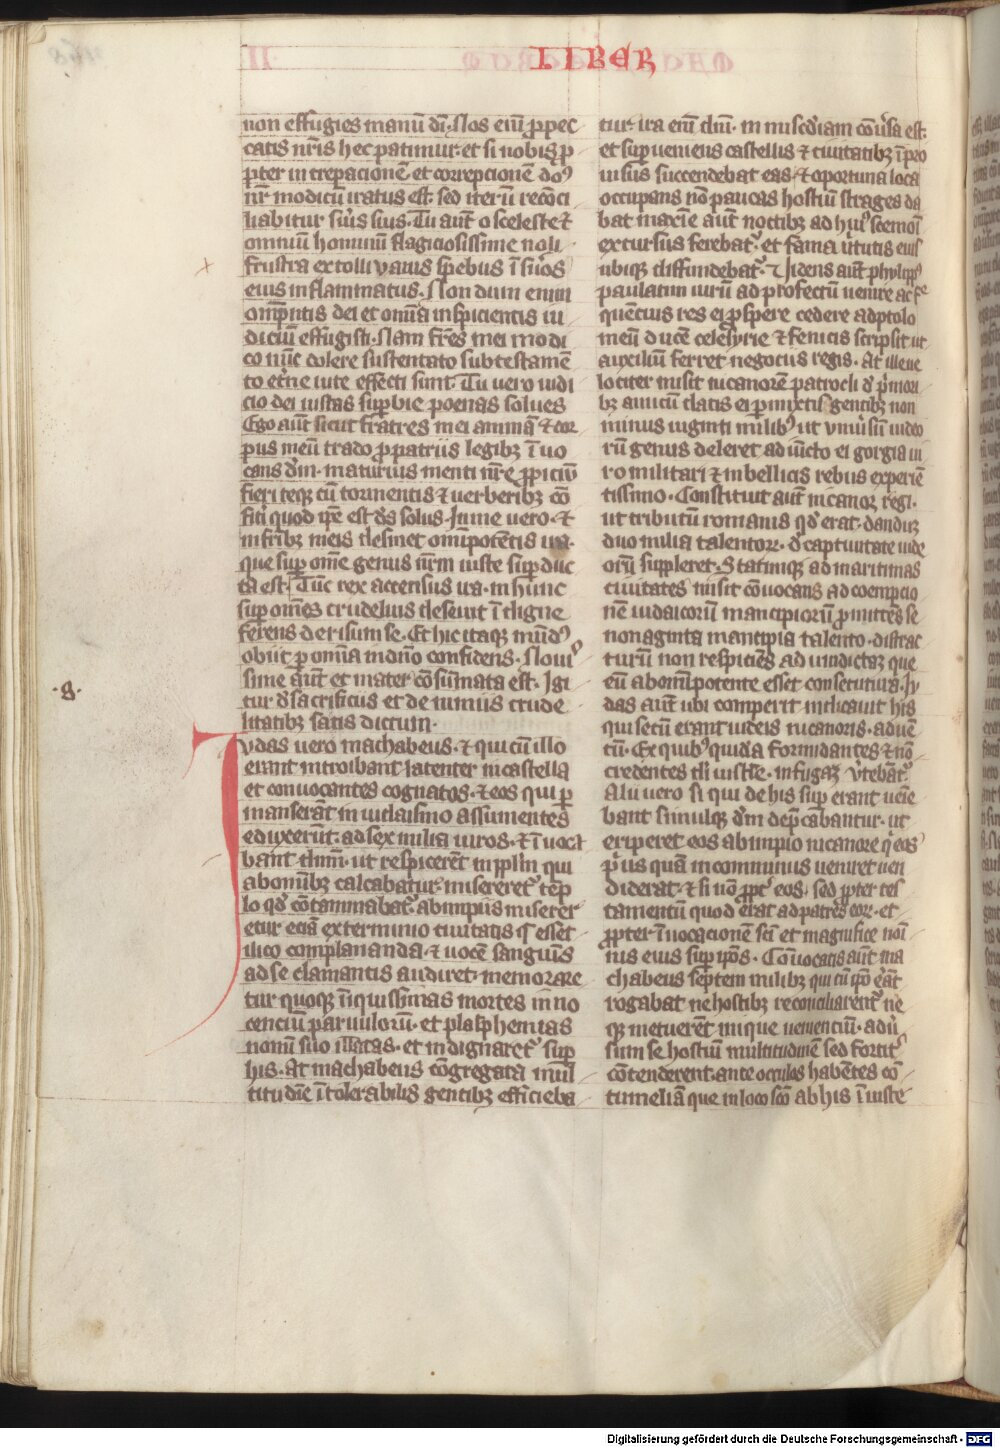 LIBER
non effugies manū dī. Nos enī p̱ pec
catis nr̄is hec patimur. et si nobis p̱
pter increpacionē et correpcionē dn̄s
nr̄ modicū iratus est. sed iterū recōci
liabitur suis suis. Tu aut̄ o sceleste ⁊
omniū hominū flagiciosissime noli
frustra extolli vanis spebus ī suos
eius inflammatus. Non dum enim
omp̄ntis dei et omīa inspicientis iu
diciū effugisti. Nam fr̄es mei modi
co nūc dolere sustentato sub testamē
to et̄ne vite effecti sunt. Tu vero iudi
cio dei iustas sup̱bie poenas solues
Ego aūt sicut fratres mei animā ⁊ cor
pus meū trado p̱ patriis legibꝫ ī uo
cans dm̄. maturius menti nr̄e p̱piciū
fieri teqꝫ cū tormentis ⁊ uerberibꝫ cō
fiti quod ip̄e est ds̄ solus. In me uero. ⁊
in fr̄ibꝫ meis desinet omīpotētis ira.
que sup̱ om̄e genus nr̄m iuste sup̱duc
ta est. Tūc rex accensus ira. in hunc
sup̱ om̄es crudelius deseuit ī digne
ferens derisum se. Et hic itaqꝫ mūdꝰ
obiit p̱ omīa in dn̄o confidens. Nouis
sime aūt et mater cōsūmata est. Igi
tur d̄ sacrificiis et de nimiis crude
litatibꝫ satis dictum.
.8.
Iudas uero machabeus. ⁊ qui cū illo
erant introibant latenter in castella
et conuocantes cognatos. ⁊ eos qui p̱
manserāt in iudaismo assumentes
eduxerūt. ad sex milia uiros. ⁊ ī uoca
bant dnm̄. ut respicerēt in pplm̄ qui
ab omībꝫ calcabatur. misereret̄ tēp
lo qd̄ cōtaminabat̄. ab impiis miserer
etur eciā exterminio ciuitatis q̄ esset
ilico complananda. ⁊ uocē sanguīs
ad se clamantis audiret. memorare
tur quoqꝫ īiquissimas mortes inno
cenciū paruulorū. et plasphemias
nomī suo illatas. et indignaret̄ sup̱
his. At machabeus cōgregata mul
titudīe ītolerabilis gentibꝫ efficieba
tur. ira enī dnī. in mīsc̄diam cōu̱sa est.
et sup̱ueniens castellis ⁊ ciuitatibꝫ īpro
uisus succendebat eas. ⁊ oportuna loca
occupans nō paucas hostiū strages da
bat maxīe aūt noctibꝫ ad huiꝰscemōi
excursus ferebat̄. et fama ūtutis eius
ubiqꝫ diffundebat̄. Uidens aūt phylippꝰ
paulatim uirū ad profectū uenire ac fre
quēcius res ei p̱spere cedere ad ptolo
meū ducē celesyrie ⁊ fenicis scripsit ut
auxiliū ferret negociis regis. At ille ue
lociter misit nicanorē patrocli d̄ p̄mori
bꝫ amicū datis ei p̱mixtis gentibꝫ non
minus uiginti milibꝰ ut vniūsū iudeo
rū genus deleret adiūcto ei gorgia ui
ro militari ⁊ in bellicis rebus experiē
tissimo. Constituit aūt nicanor regi.
ut tributū romanis qd̄ erat. dandū
duo milia talentoꝝ. d̄ captiuitate iude
orū suppleret. Statimqꝫ ad maritimas
ciuitates misit cōuocans ad coempcio
nē iudaicorū mancipiorū p̱mittēs se
nonaginta mancipia talento. distrac
turū non respiciēs ad uindictā que
eū ab omīpotente esset consecutura. Iu
das aūt ubi comperit indicauit his
qui secū erant iudeis nicanoris. aduē
tū. Ex quibꝰ quidā formidantes ⁊ nō
credentes dī iustīe. in fugā ūtebāt̄.
Alii uero si qui de his sup̱ erant uēie
bant simulqꝫ dm̄ dep̄cabantur. ut
eriperet eos ab impio nicanore qī eos
p̄us quā in comminus ueniret uen
diderat. ⁊ si nō ppt̄ eos. sed ppter tes
tamentū quod erat ad patres eoꝝ. et
ppter īuocacionē scī et magnifice noī
nis eius sup̱ ip̄os. Cōuocatis aūt ma
chabeus septem milibꝫ qui cū ip̄o erāt
rogabat ne hostibꝫ reconciliarent̄ ne
qꝫ metuerēt inique uenienciū. adū
sum se hostiū multitudinē sed fortit̄
cōtenderent. ante occulos habētes cō
tumeliā que in loco scō ab his īiuste
Digitalisierung gefördert durch die Deutsche Forschungsgemeinschaft - DFG